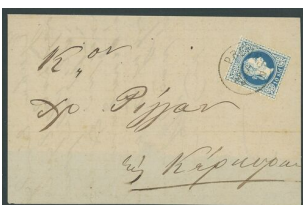 Κ,,ον
Χρ Ρίγγαν
εἰς Κέρκυραν